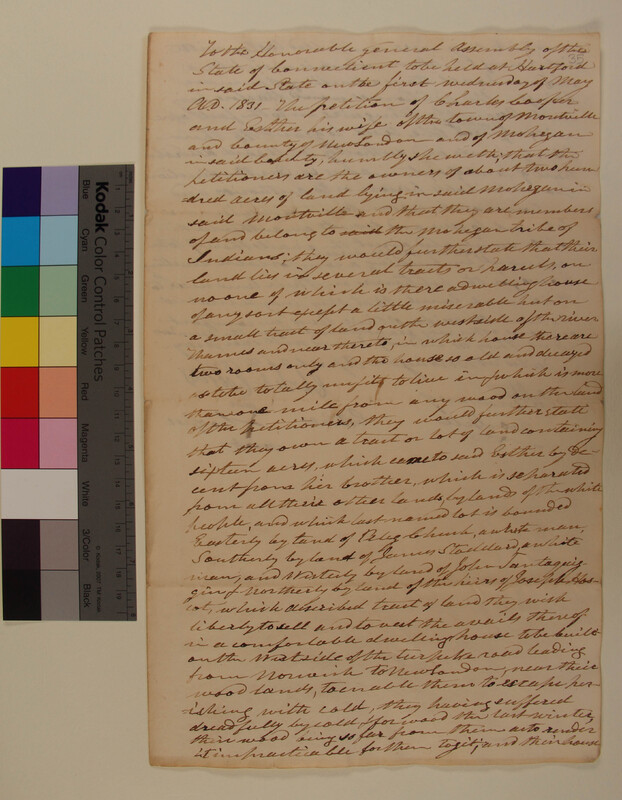 To the Honorable general Assembly of the
State of Connecticut to be held at Hartford
in said State on the first wednesday of May
A.D. 1831. The petition of Charles Cooper
and Esther his wife of the town of Montville
and County of New London and of Mohegan
in said County, humbly sheweth; that the
Petitioners are the owners of about two hun
dred acres of land lying in said Mohegan in
said Montville and that they are members
of and belong to said the Mohegan tribe of
Indians; they would further state that their
land lies in several tracts or parcels, on
no one of which is there a dwelling house
of any sort except a little miserable hut on
a small tract of land on the west side of the river
thames and near thereto, in which house there are
two rooms only and the house so old and decayed
as to be totally unfit to live in, which is more
than one mile from any wood on the land
of the Petitioners, they would further state
that they own a tract or lot of land containing
sixteen acres, which came to said Esther by de-
cent from her brother, which is separated
from all their other lands, by lands of the white
people, and which last named lot is bounded
Easterly by land of Peleg Church, a white man,
Southerly by land of James Stoddard, a white
man, and Westerly by land of John Tantaquig
gin & Northerly by land of the heirs of Joseph Has-
cot, which discribed tract of land they wish
liberty to sell and to vest the avails thereof
in a comfortable dwelling house to be built
on the West side of the turpike road leading
from Norwich to New London, near their
wood lands, to enable them to escape per-
ishing with cold, they having suffered
dreadfully by cold, for wood the last winter,
their wood being so far from them as to render
it impracticable for them to git, and their house
Kodak Color Control Patches
Blue
Cyan
Green
Yellow
Red
Magenta
White
3/Color
Black